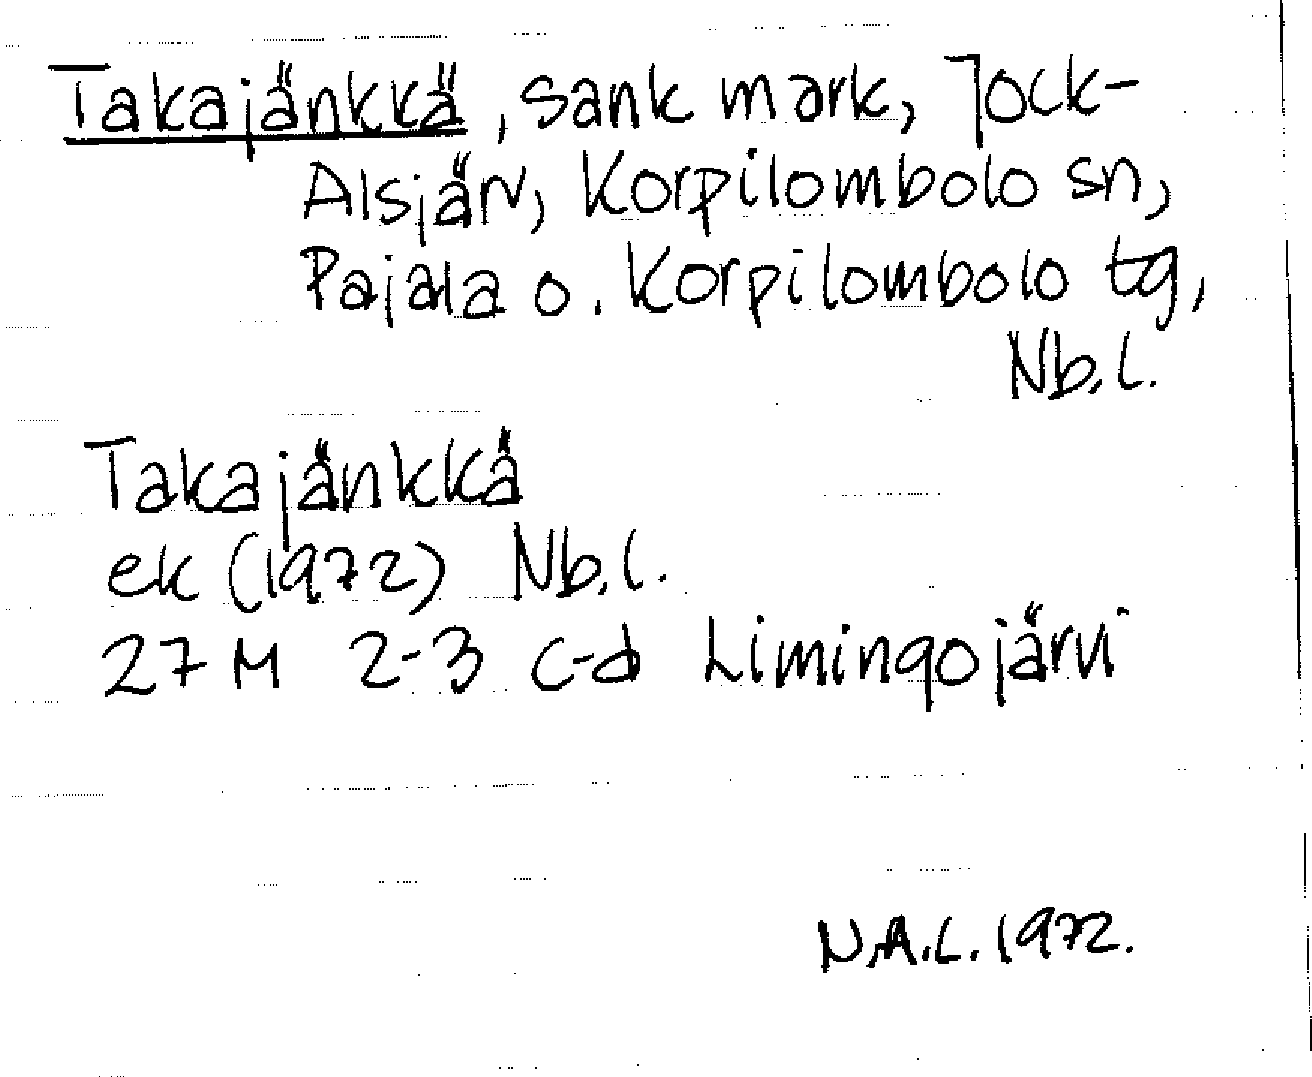 Takajänkkä, sank mark, Jock-
Alsjärv, Korpilombolo sn,
Pajala o. Korpilombolo tg,
Nb.l.
Takajänkkä
ek (1972) Nb.l.
27 M 2-3 c-d Limingojärvi
N.A.L. 1972.